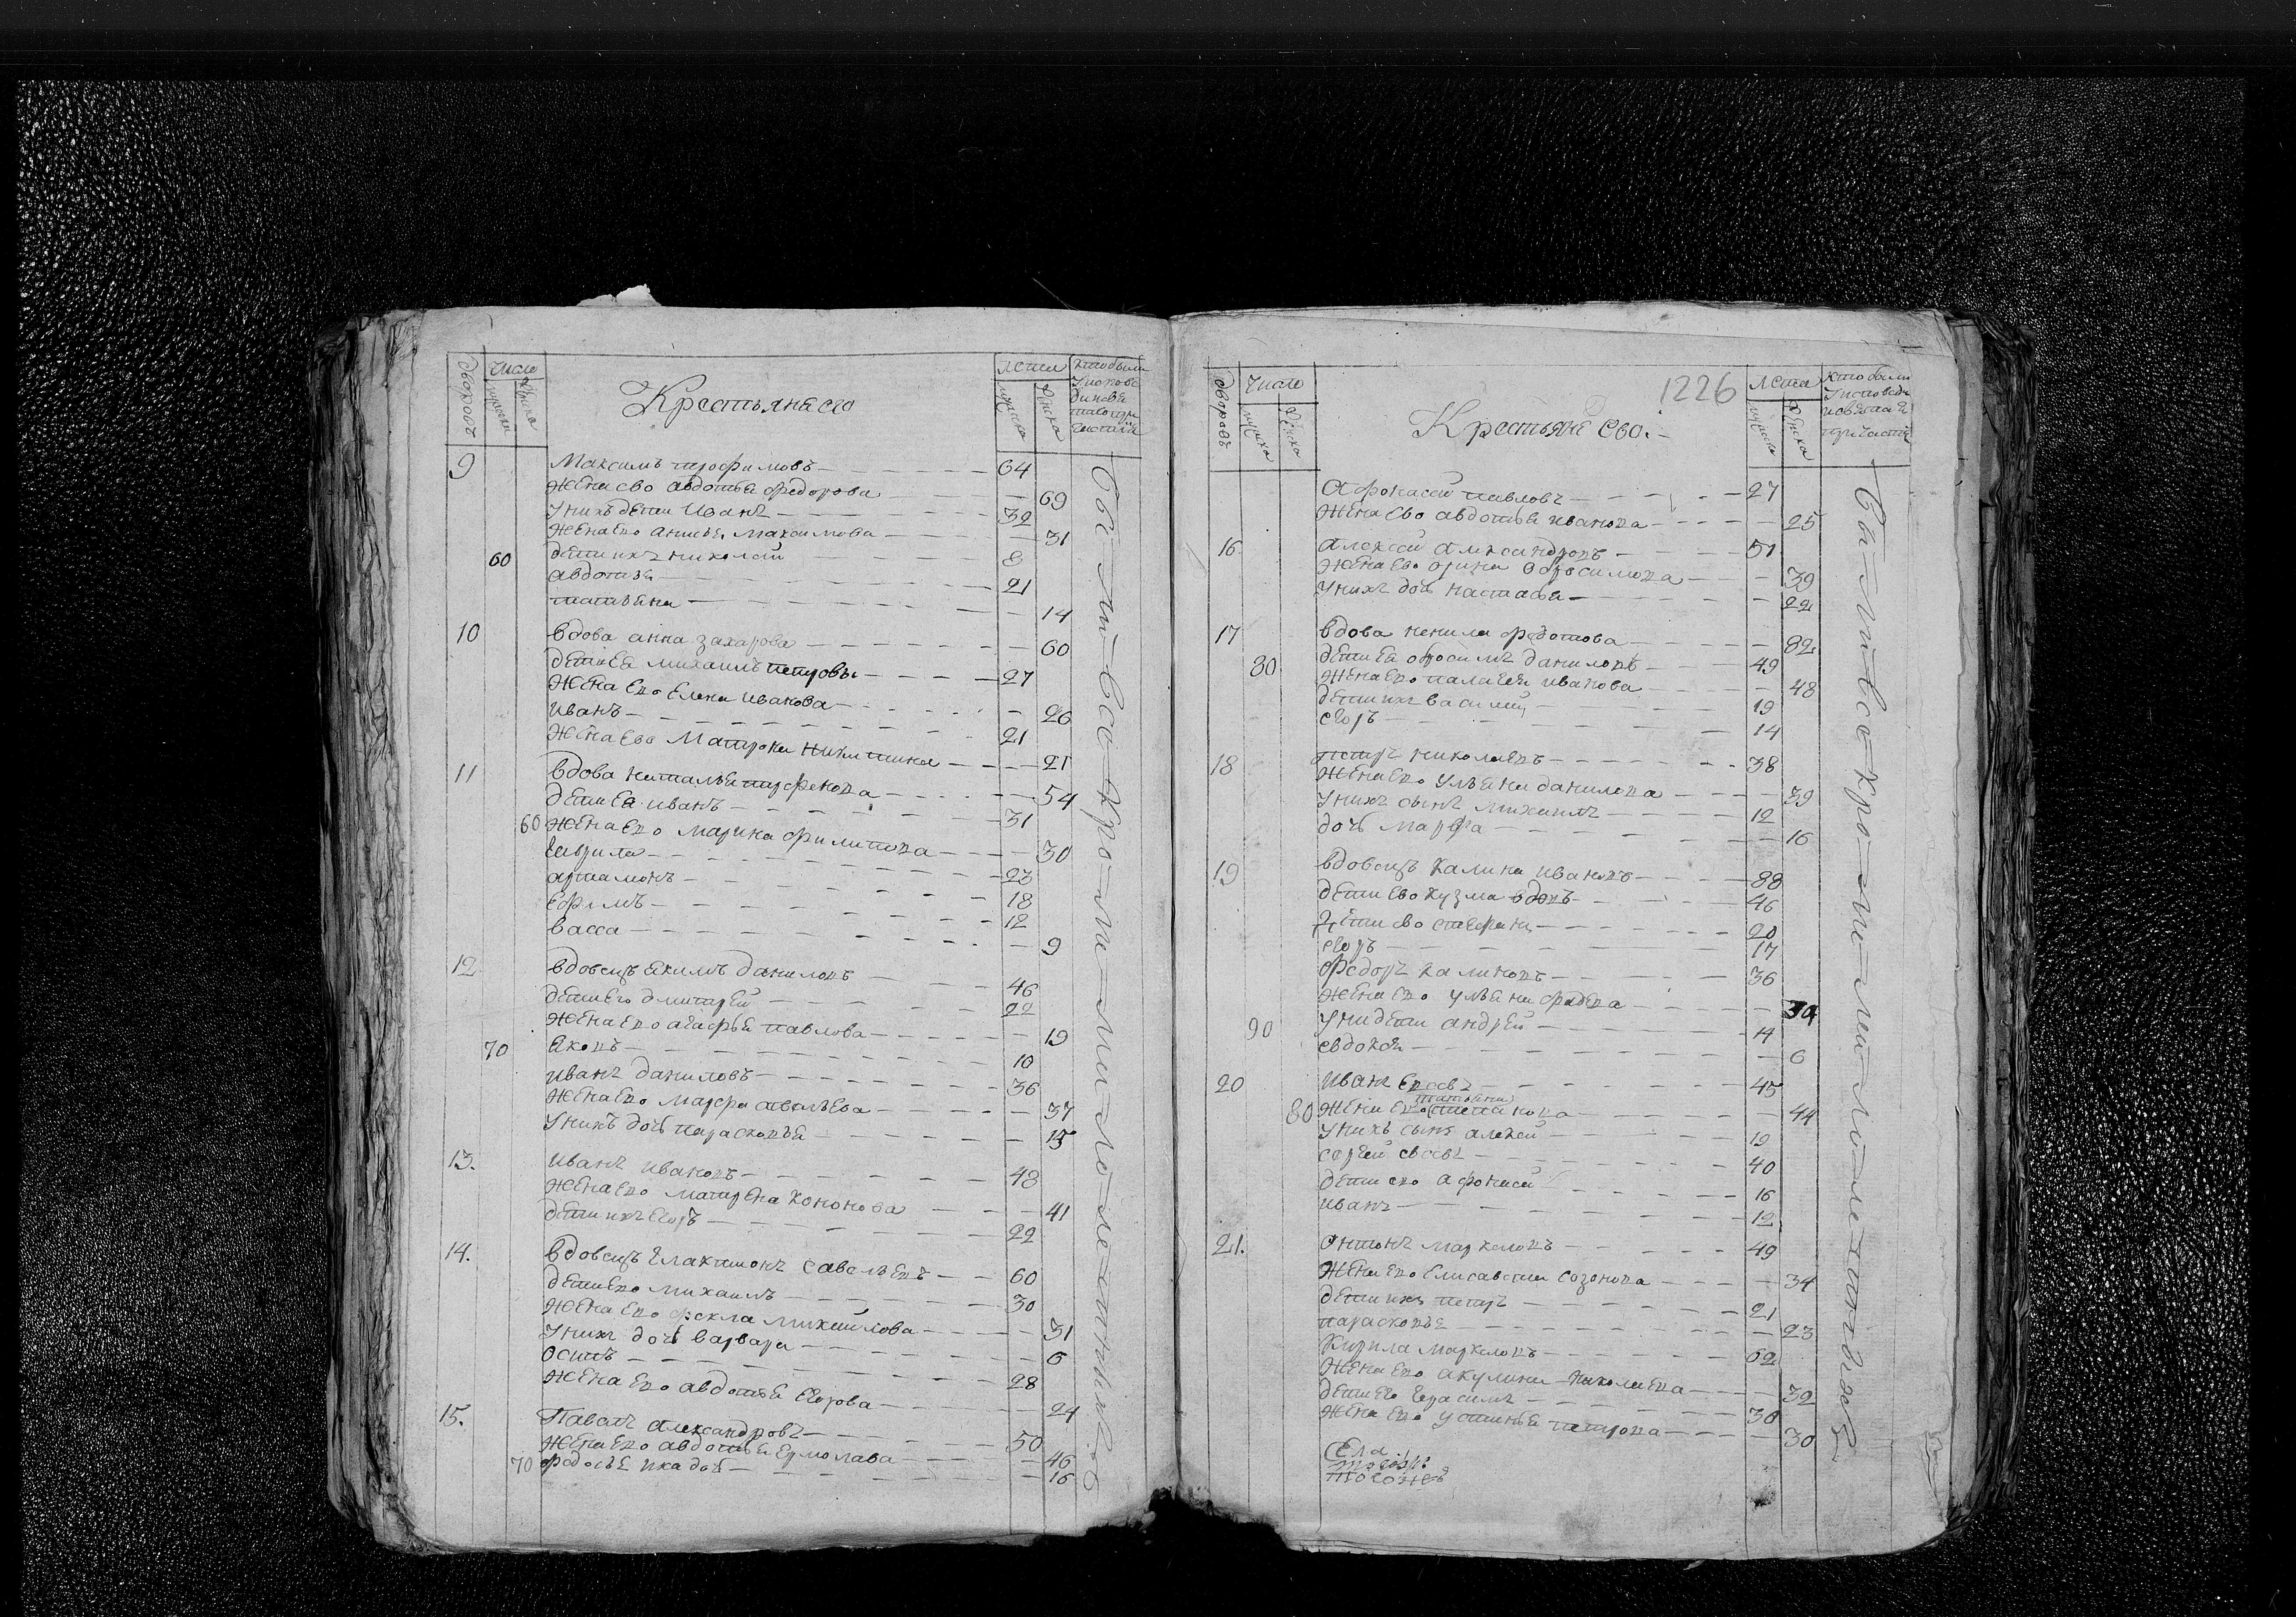 дворовъ
Число
мужска
женска
Крестьяне ево
Лета
мужска
женска
кто были
у испове
ди и свя
таго при
частия
9 Максимъ трофимовъ 64
жена ево авдотья федорова 69
у нихъ дети Иванъ 32
жена ево анисья Максимова 31
60 дети ихъ николай 8
авдотья 21
татьяна 14
10 вдова анна захарова 60
дети ея михаилъ петровы 27
жена ево Елена иванова 26
иванъ 21
жена ево Матрона никитина 21
11 вдова наталья трофимова 54
дети ея иванъ 31
60 жена ево марина филипова 30
гаврила 23
артамонъ 18
ефимъ 12
васса 9
12 вдовецъ якимъ даниловъ 46
дети его дмитрей 22
жена ево агафья павлова 19
70 яковъ 10
иванъ даниловъ 36
жена ево марфа савельева 37
у нихъ дочь парасковья 15
13. иванъ ивановъ 48
жена ево матрена кононова 41
дети ихъ егоръ 22
14. вдовецъ галактионъ савельевъ 60
дети ево михаилъ 30
жена ево фекла михайлова 31
у нихъ дочь варвара 6
осипъ 28
жена ево авдотья егорова 24
15. Павелъ александровъ 50
жена ево авдотья ермолава 46
70 федосья ихъ дочь 16
были все кромѣ малолетнихъ
дворовъ
Число
мужска
женска
1226
Крестьяне ево:
Лета
мужска
женска
кто были
у исповеди
и святаго
причастия
Афонасей павловъ 27
жена ево авдотья иванова 25
16 Алексей Александровъ 51
жена ево орина Абросимова 39
у нихъ дочь настасья 22
17 вдова ненила федотова 82
80 дети ея абросимъ даниловъ 49
жена ево палагея иванова 48
дети ихъ василий 19
егоръ 14
18 петръ николаевъ 38
жена ево ульяна данилова 39
у нихъ сынъ михаилъ 12
дочь марфа 16
19 вдовецъ калина ивановъ 88
дети ево кузма вдовъ 46
дети ево стефанъ 20
егоръ 17
федоръ калиновъ 36
жена ево ульяна фадева 34
90 у ни дети андрей 14
евдокея 6
20 иванъ евсевъ 45
татьяна
80 жена ево степанова 44
у нихъ сынъ алексей 19
сергей евсевъ 40
дети ево афонасей 16
иванъ 12
21. антонъ маркеловъ 49
жена ево елисавета созонова 34
дети ихъ петръ 21
парасковья 23
Кирила маркеловъ 62
жена ево акулина николаева 32
дети его герасимъ 30
жена ево устинья петрова 30
Села
тогожъ
были все кромѣ малолетнихъ